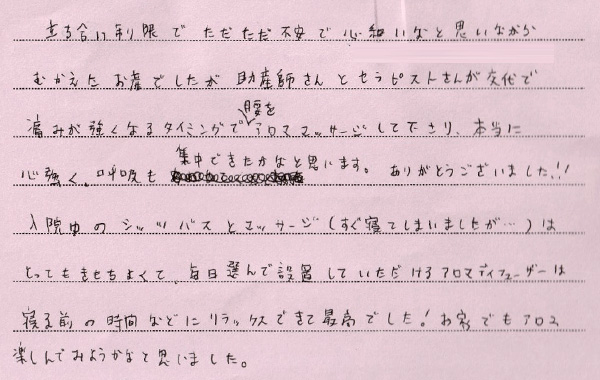 立ち合い制限でただただ不安で心細いなと思いながら
むかえたお産でしたが助産師さんとセラピストさんが交代で
痛みが強くなるタイミングで腰をアロママッサージして下さり、本当に
心強く、呼吸も集中できたかなと思います。ありがとうございました!!
入院中のシッツバスとマッサージ(すぐ寝てしまいましたが…)は
とってもきもちよくて、毎日選んで設置していただけるアロマディフューザーは
寝る前の時間などにリラックスできて最高でした!お家でもアロマ
楽しんでみようかなて思いました。